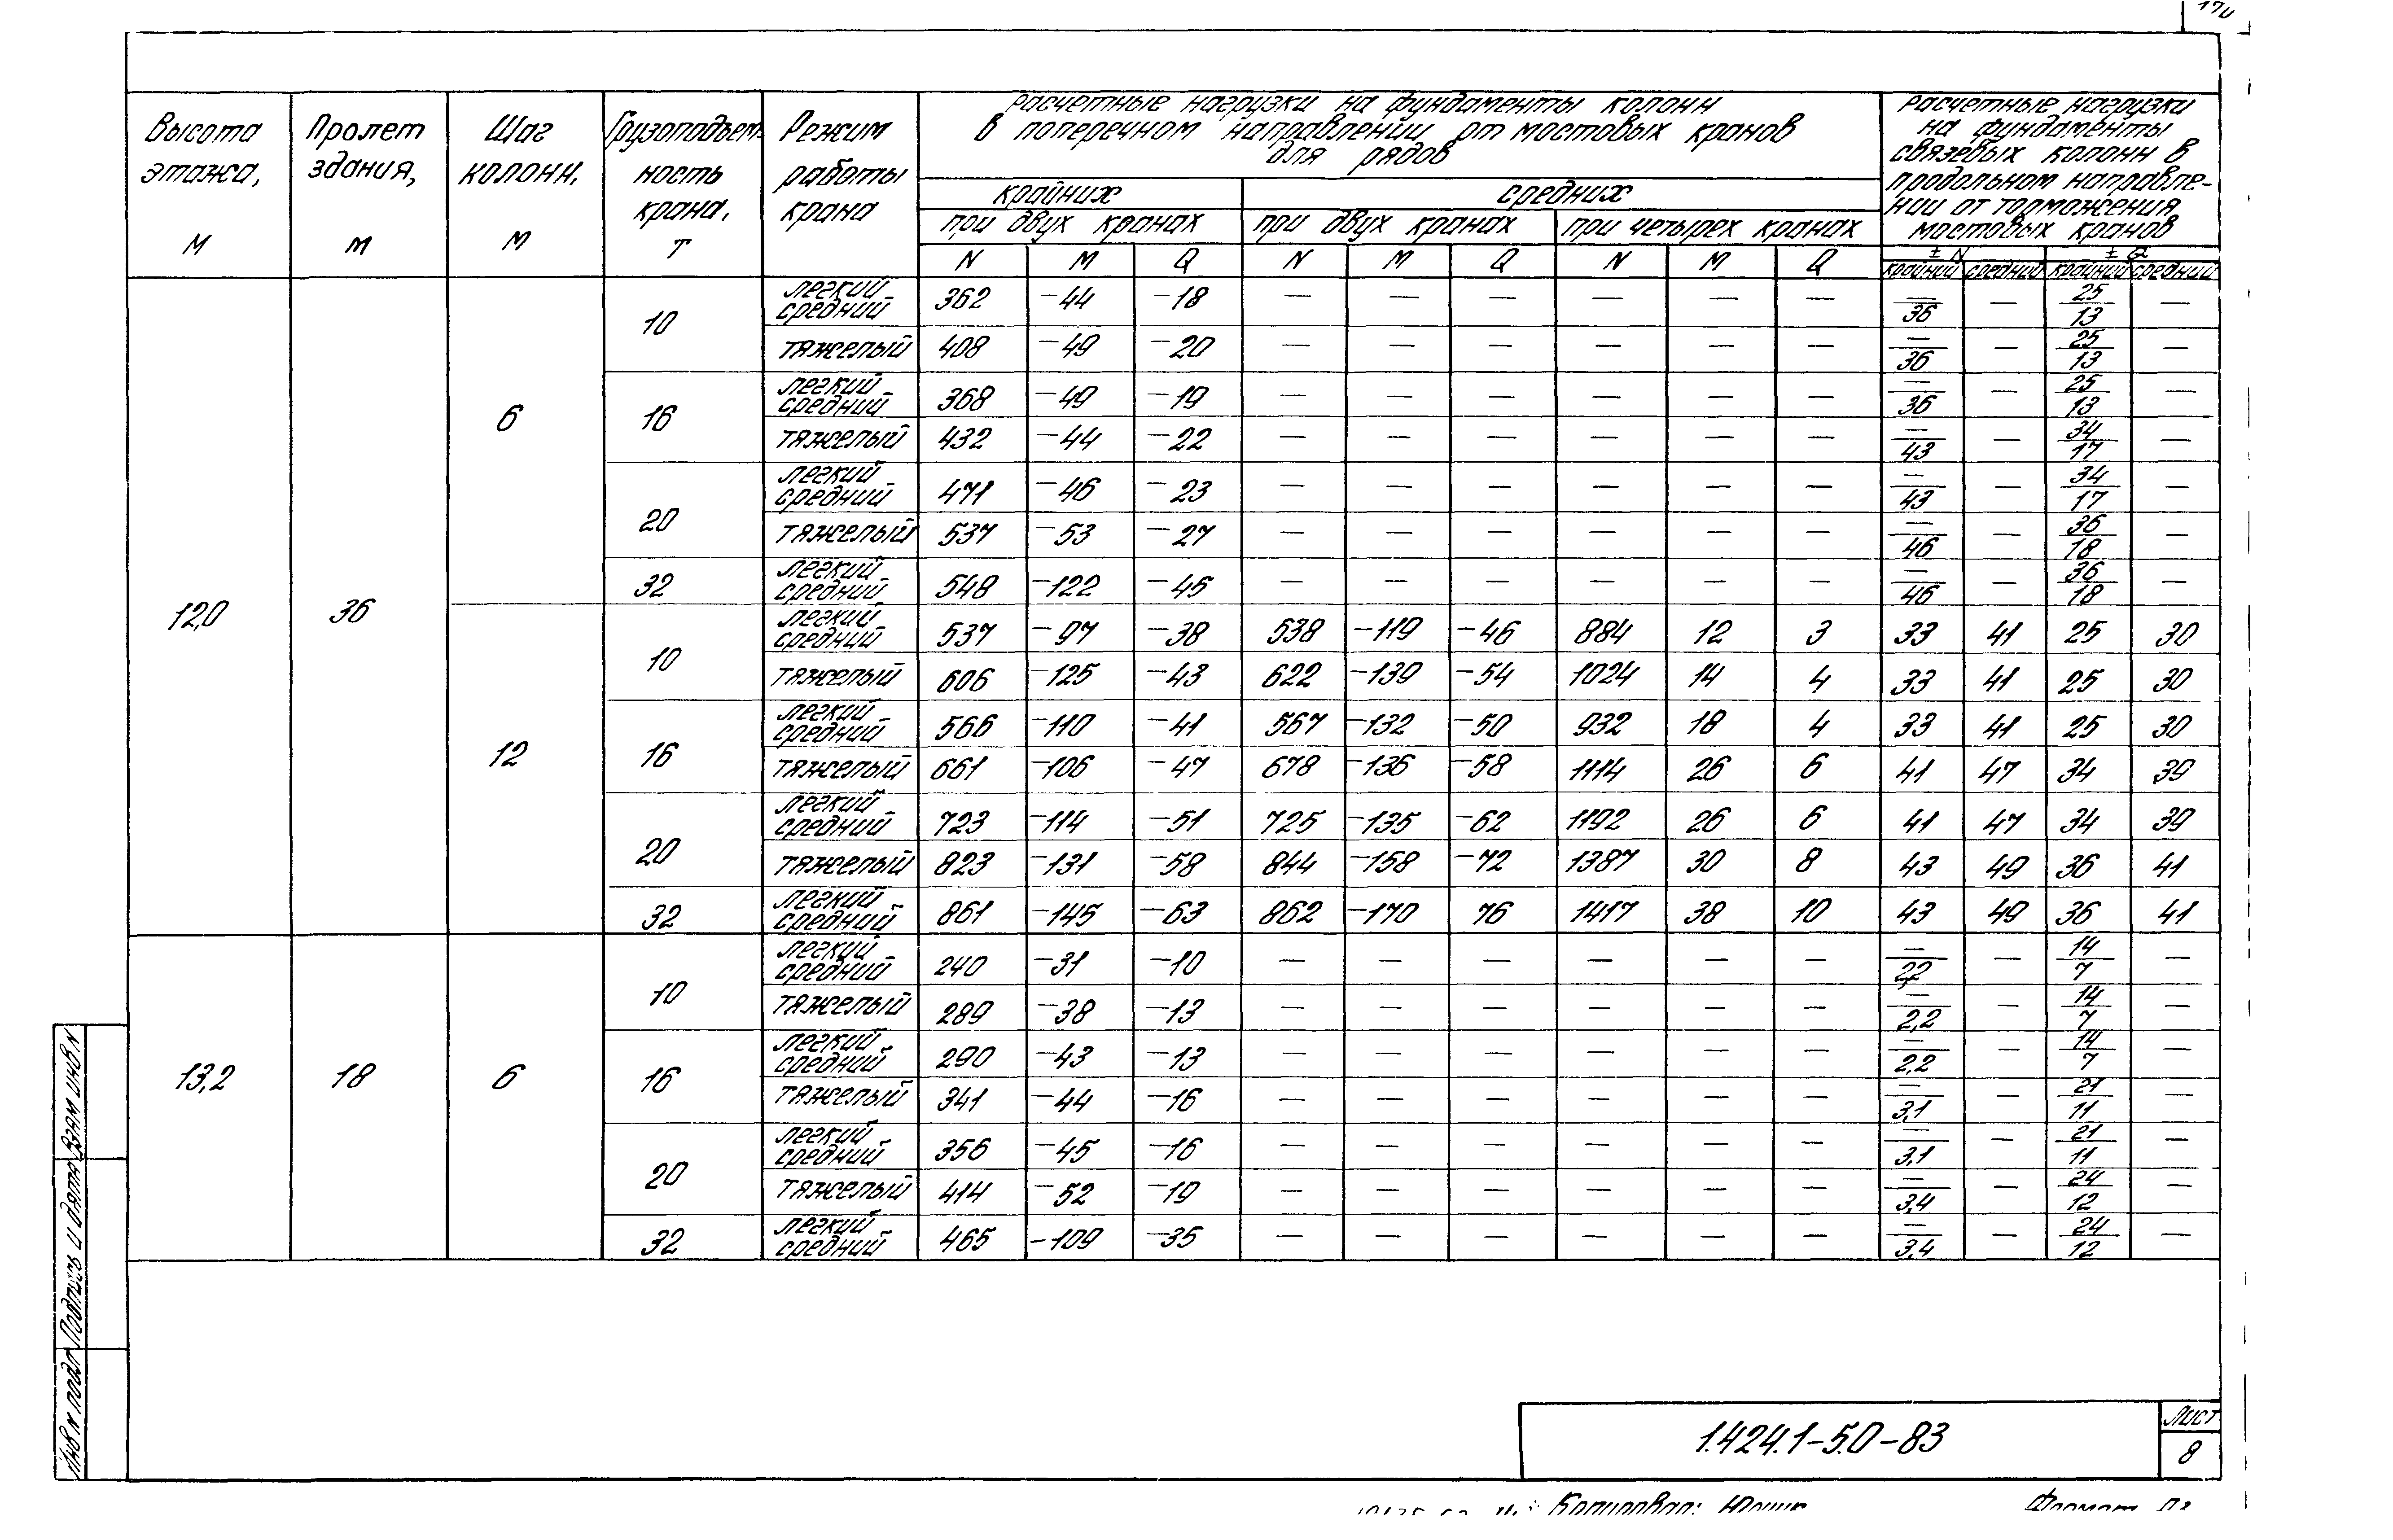 Высота этажа, М
Пролет здания, М
Шаг колонн, М
Грузоподъем-ность крана, Т
Режим работы крана
Расчетные нагрузки на фундаменты колонн
в поперечном направлении от мостовых кранов
для рядов
Расчетные нагрузки
на фундаменты
связевых колонн в
продольном направле-
нии от торможения
мостовых кранов
крайних средних
при двух кранах при двух кранах при четырех кранах
N M Q N M Q N M Q ± N ± Q
крайний средний крайний средний
12,0 36 6
10 легкий средний 362 -44 -18 — — — — — — —/36 — 25/13 —
тяжелый 408 -49 -20 — — — — — — —/36 — 25/13 —
16 легкий средний 368 -49 -19 — — — — — — —/36 — 25/13 —
тяжелый 432 -44 -22 — — — — — — —/43 — 34/17 —
20 легкий средний 471 -46 -23 — — — — — — —/43 — 34/17 —
тяжелый 537 -53 -27 — — — — — — —/46 — 36/18 —
32 легкий средний 548 -122 -45 — — — — — — —/46 — 36/18 —
12
10 легкий средний 537 -97 -38 538 -119 -46 884 12 3 33 41 25 30
тяжелый 606 -125 -43 622 -139 -54 1024 14 4 33 41 25 30
16 легкий средний 566 -110 -41 567 -132 -50 932 18 4 33 41 25 30
тяжелый 661 -106 -47 678 -136 -58 1114 26 6 41 47 34 39
20 легкий средний 723 -114 -51 725 -135 -62 1192 26 6 41 47 34 39
тяжелый 823 -131 -58 844 -158 -72 1387 30 8 43 49 36 41
32 легкий средний 861 -145 -63 862 -170 76 1417 38 10 43 49 36 41
13,2 18 6
10 легкий средний 240 -31 -10 — — — — — — —/2,2 — 14/7 —
тяжелый 289 -38 -13 — — — — — — —/2,2 — 14/7 —
16 легкий средний 290 -43 -13 — — — — — — —/2,2 — 14/7 —
тяжелый 341 -44 -16 — — — — — — —/3,1 — 21/11 —
20 легкий средний 356 -45 -16 — — — — — — —/3,1 — 21/11 —
тяжелый 414 -52 -19 — — — — — — —/3,4 — 24/12 —
32 легкий средний 465 -109 -35 — — — — — — —/3,4 — 24/12 —
Взам инв N
Подпись и дата
Инв N подл
1.424.1-5.0-83
Лист
8
Копировал:
Формат